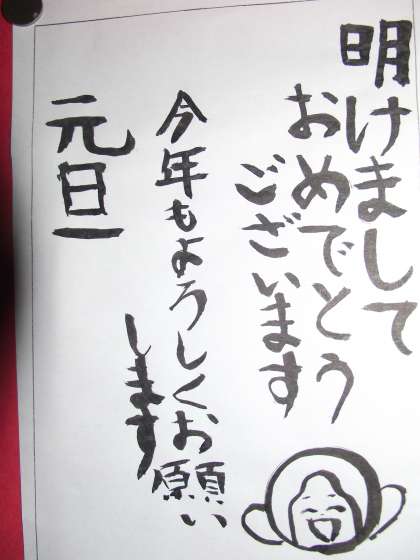 明けまして
おめでとう
ございます
今年もよろしくお願い
します
元旦